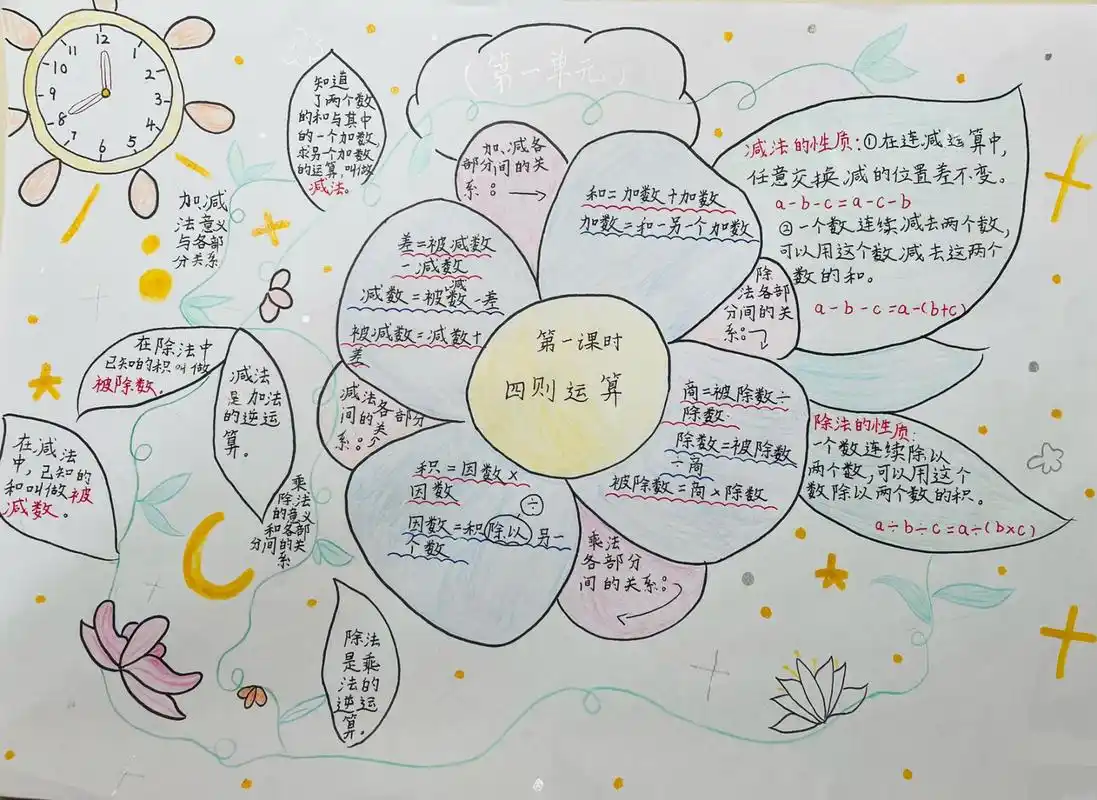 12
11
1
10
2
9
3
8
4
7
5
6
(第一单元)
知道
了两个数
的和与其中
的一个加数,
求另一个加数
的运算,叫做
减法。
加、减
法意义
与各部
分关系
加、减各
部分间的关
系:
和=加数+加数
加数=和-另一个加数
减法的性质:①在连减运算中,
任意交换减的位置差不变。
a-b-c=a-c-b
②一个数连续减去两个数,
可以用这个数减去这两个
数的和。
a-b-c=a-(b+c)
差=被减数
-减数
减数=被减数-差
被减数=减数+
差
除
法各部
分间的关
系:
第一课时
四则运算
在除法中
已知的积叫做
被除数。
减法
是加法
的逆运
算。
减法各部分
间的关
系:
商=被除数÷
除数
除数=被除数
÷商
被除数=商×除数
除法的性质:
一个数连续除以
两个数,可以用这个
数除以两个数的积。
a÷b÷c=a÷(b×c)
在减法
中,已知的
和叫做被
减数。
乘
除法
的意义
和各部
分间的关
系
积=因数×
因数
÷
因数=积除以另一
个数
乘法
各部分
间的关系:
除法
是乘
法的
逆运
算。